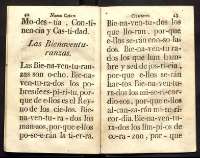 42
Mo-des-tia, Con-ti-
nen-cia y Cas-ti-dad.
Las Bienaventu-
ranzas.
Las Bie-na-ven-tu-ran-
zas son o-cho. Bie-na-
ven-tu-ra-dos los po-
bres de es-pi-ri-tu, por-
que de e-llos es el Rey-
no de los cie-los. Bie-
na-ven-tu-ra-dos los
man-sos, por-que e-llos
po-se-e-rán la ti-er-ra.
43
Bie-na-ven-tu-ra-dos los
que llo-ran, por-que
e-llos se-rán con-so-la-
dos. Bie-na-ven-tu-ra-
dos los que han ham-
bre y sed de jus-ti-cia,
por-que e-llos se-rán
har-tos. Bie-na-ven-tu-
ra-dos los mi-se-ri-cor-
Bie-na-ven-tu-ra-
dos los lim-pi-os de
co-ra-zon, por-que